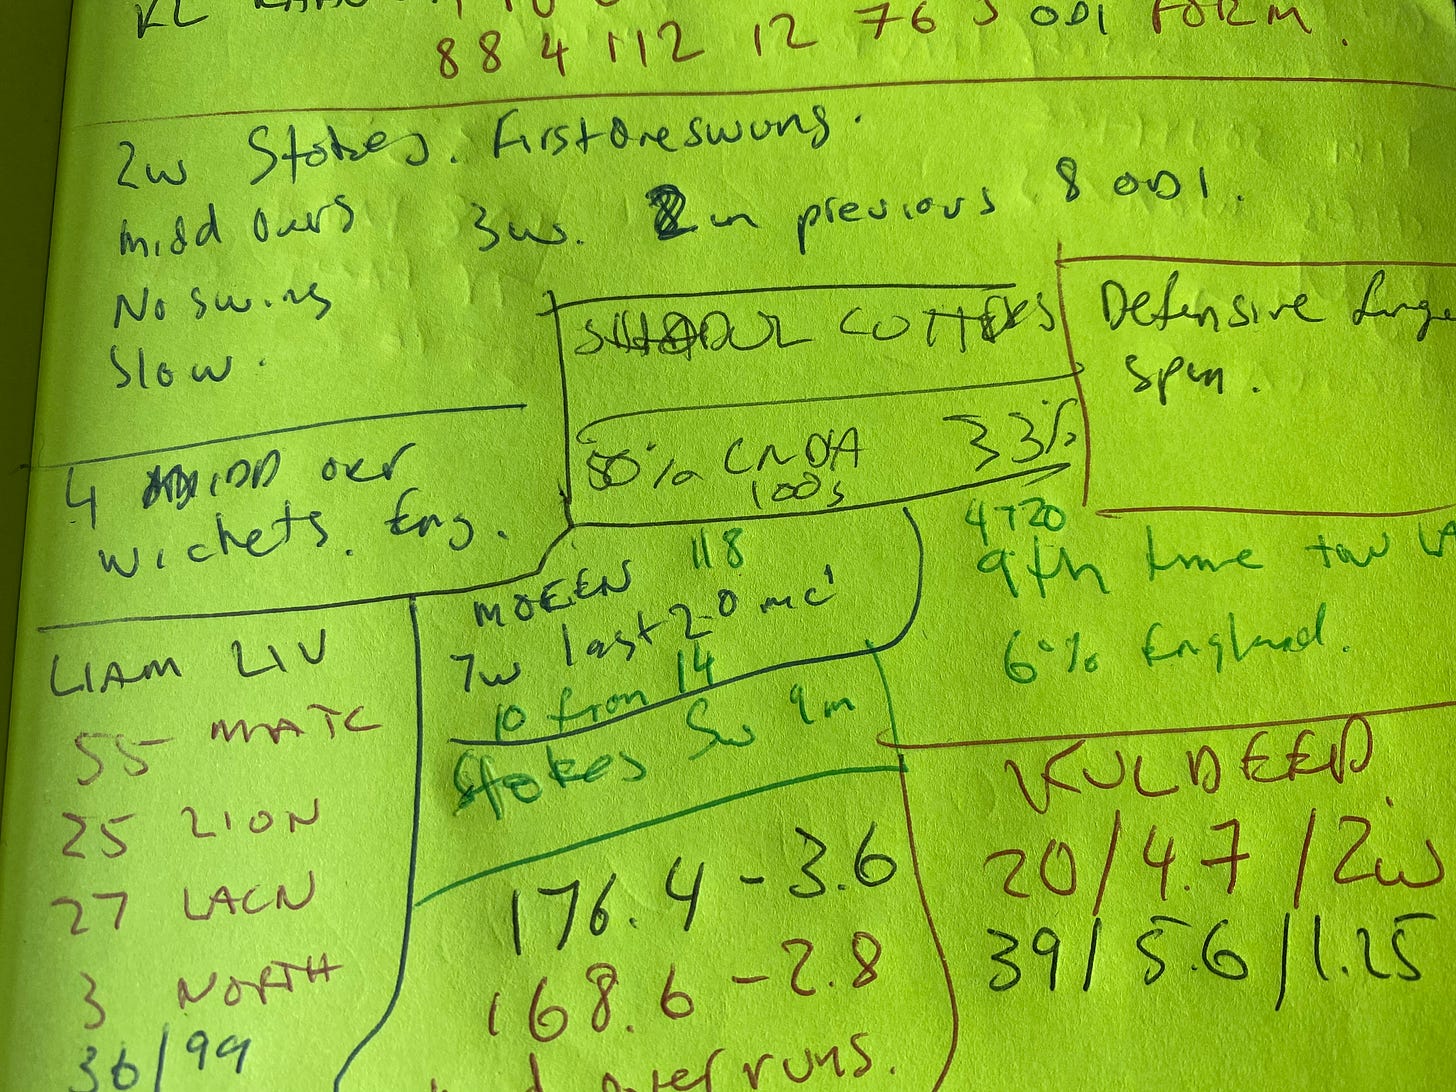 KL
88 4 112 12 76 5 ODI FORM.
2w Stokes. First one swung.
midd overs 3w. 2 in previous 8 ODI.
No swing
Slow.
SHADUL CUTTERS
Defensive finge
spin.
50% CNDA 33%
100s
4 MIDD over
wickets. Eng.
MOEEN 118
7w last 20 mc'
10 from 14
Stokes 5w 9m
4 T20
9th time
60% England.
LIAM LIV
55 MATC
25 LION
27 LACN
3 NORTH
36/99
176.4 - 3.6
168.6 - 2.8
over runs.
KULDEEP
20/4.7/2w
39/5.6/1.25